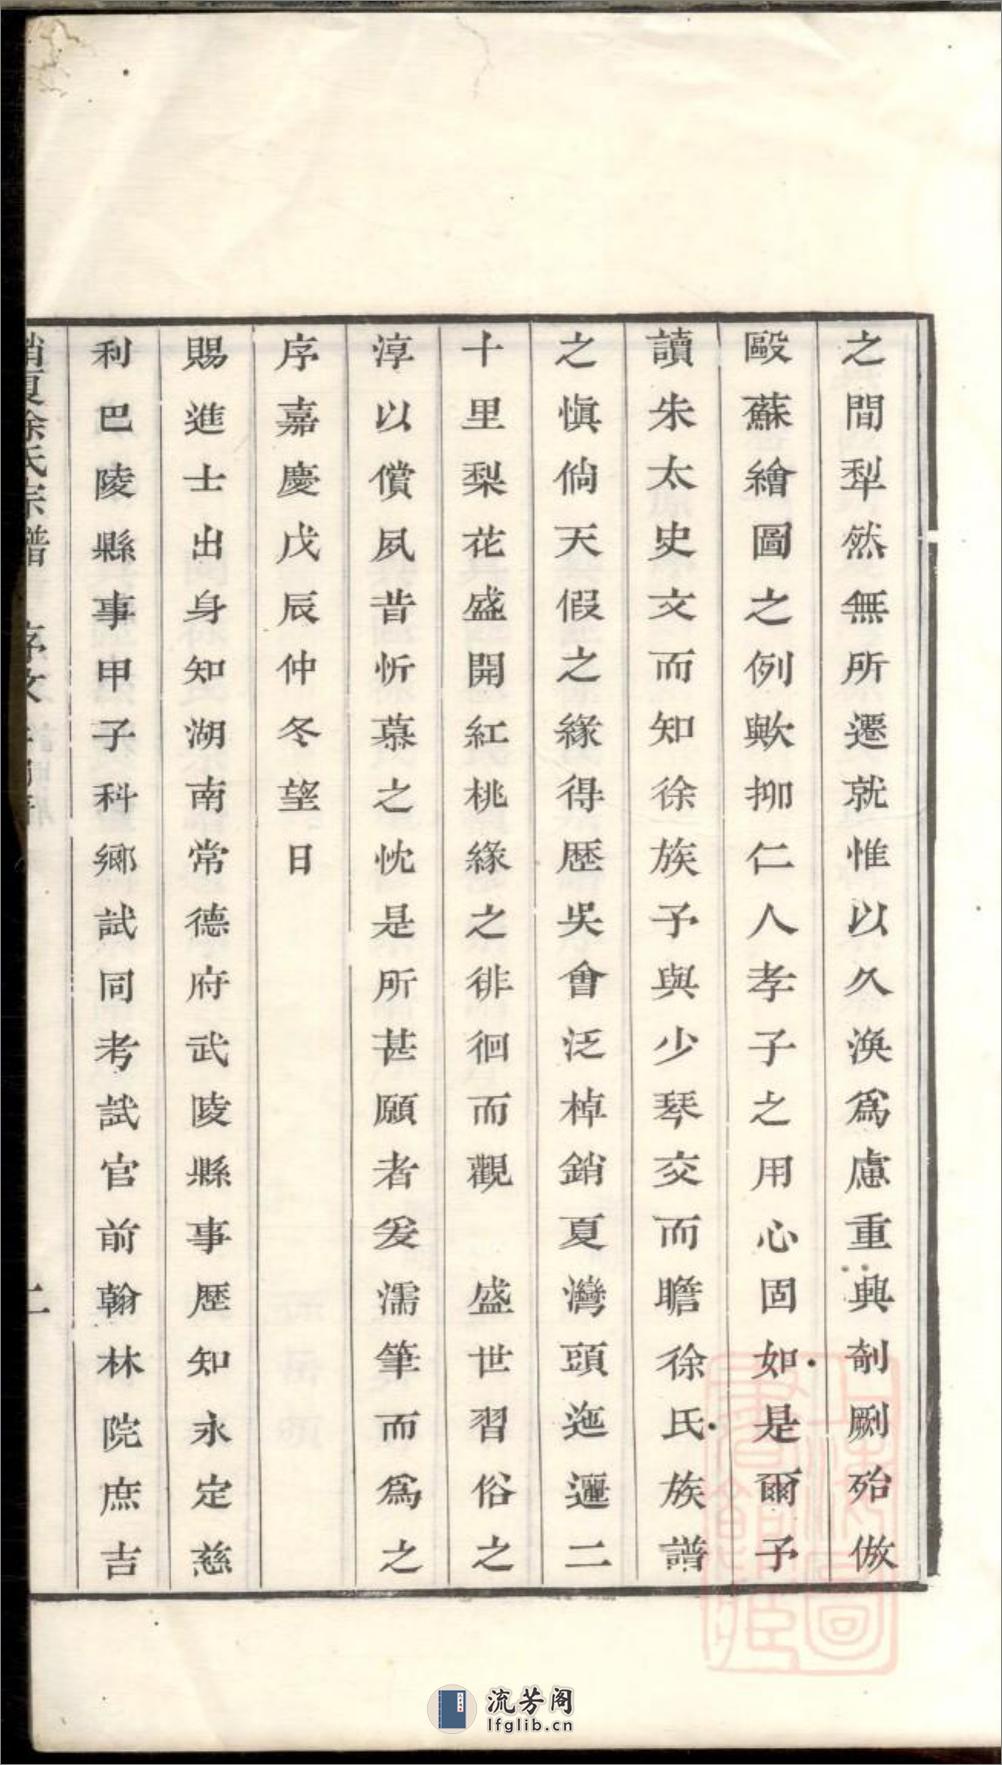 之間犁然無所遷就惟以久渙爲慮重典剞劂殆倣
毆蘇繪圖之例歟抑仁人孝子之用心固如是爾予
讀朱太史文而知徐族予與少琴交而瞻徐氏族譜
之愼倘天假之緣得歷吳會泛棹銷夏灣頭迤邐二
十里梨花盛開紅桃緣之徘徊而觀　盛世習俗之
淳以償夙昔忻慕之忱是所甚願者爰濡筆而爲之
序嘉慶戊辰仲冬望日
賜進士出身知湖南常德府武陵縣事歷知永定慈
利巴陵縣事甲子科鄉試同考試官前翰林院庶吉
銷夏徐氏宗譜　序文　二
流芳阁
lfglib.cn